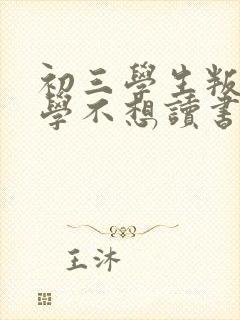 初三學生叛
學不想讀書
王沐